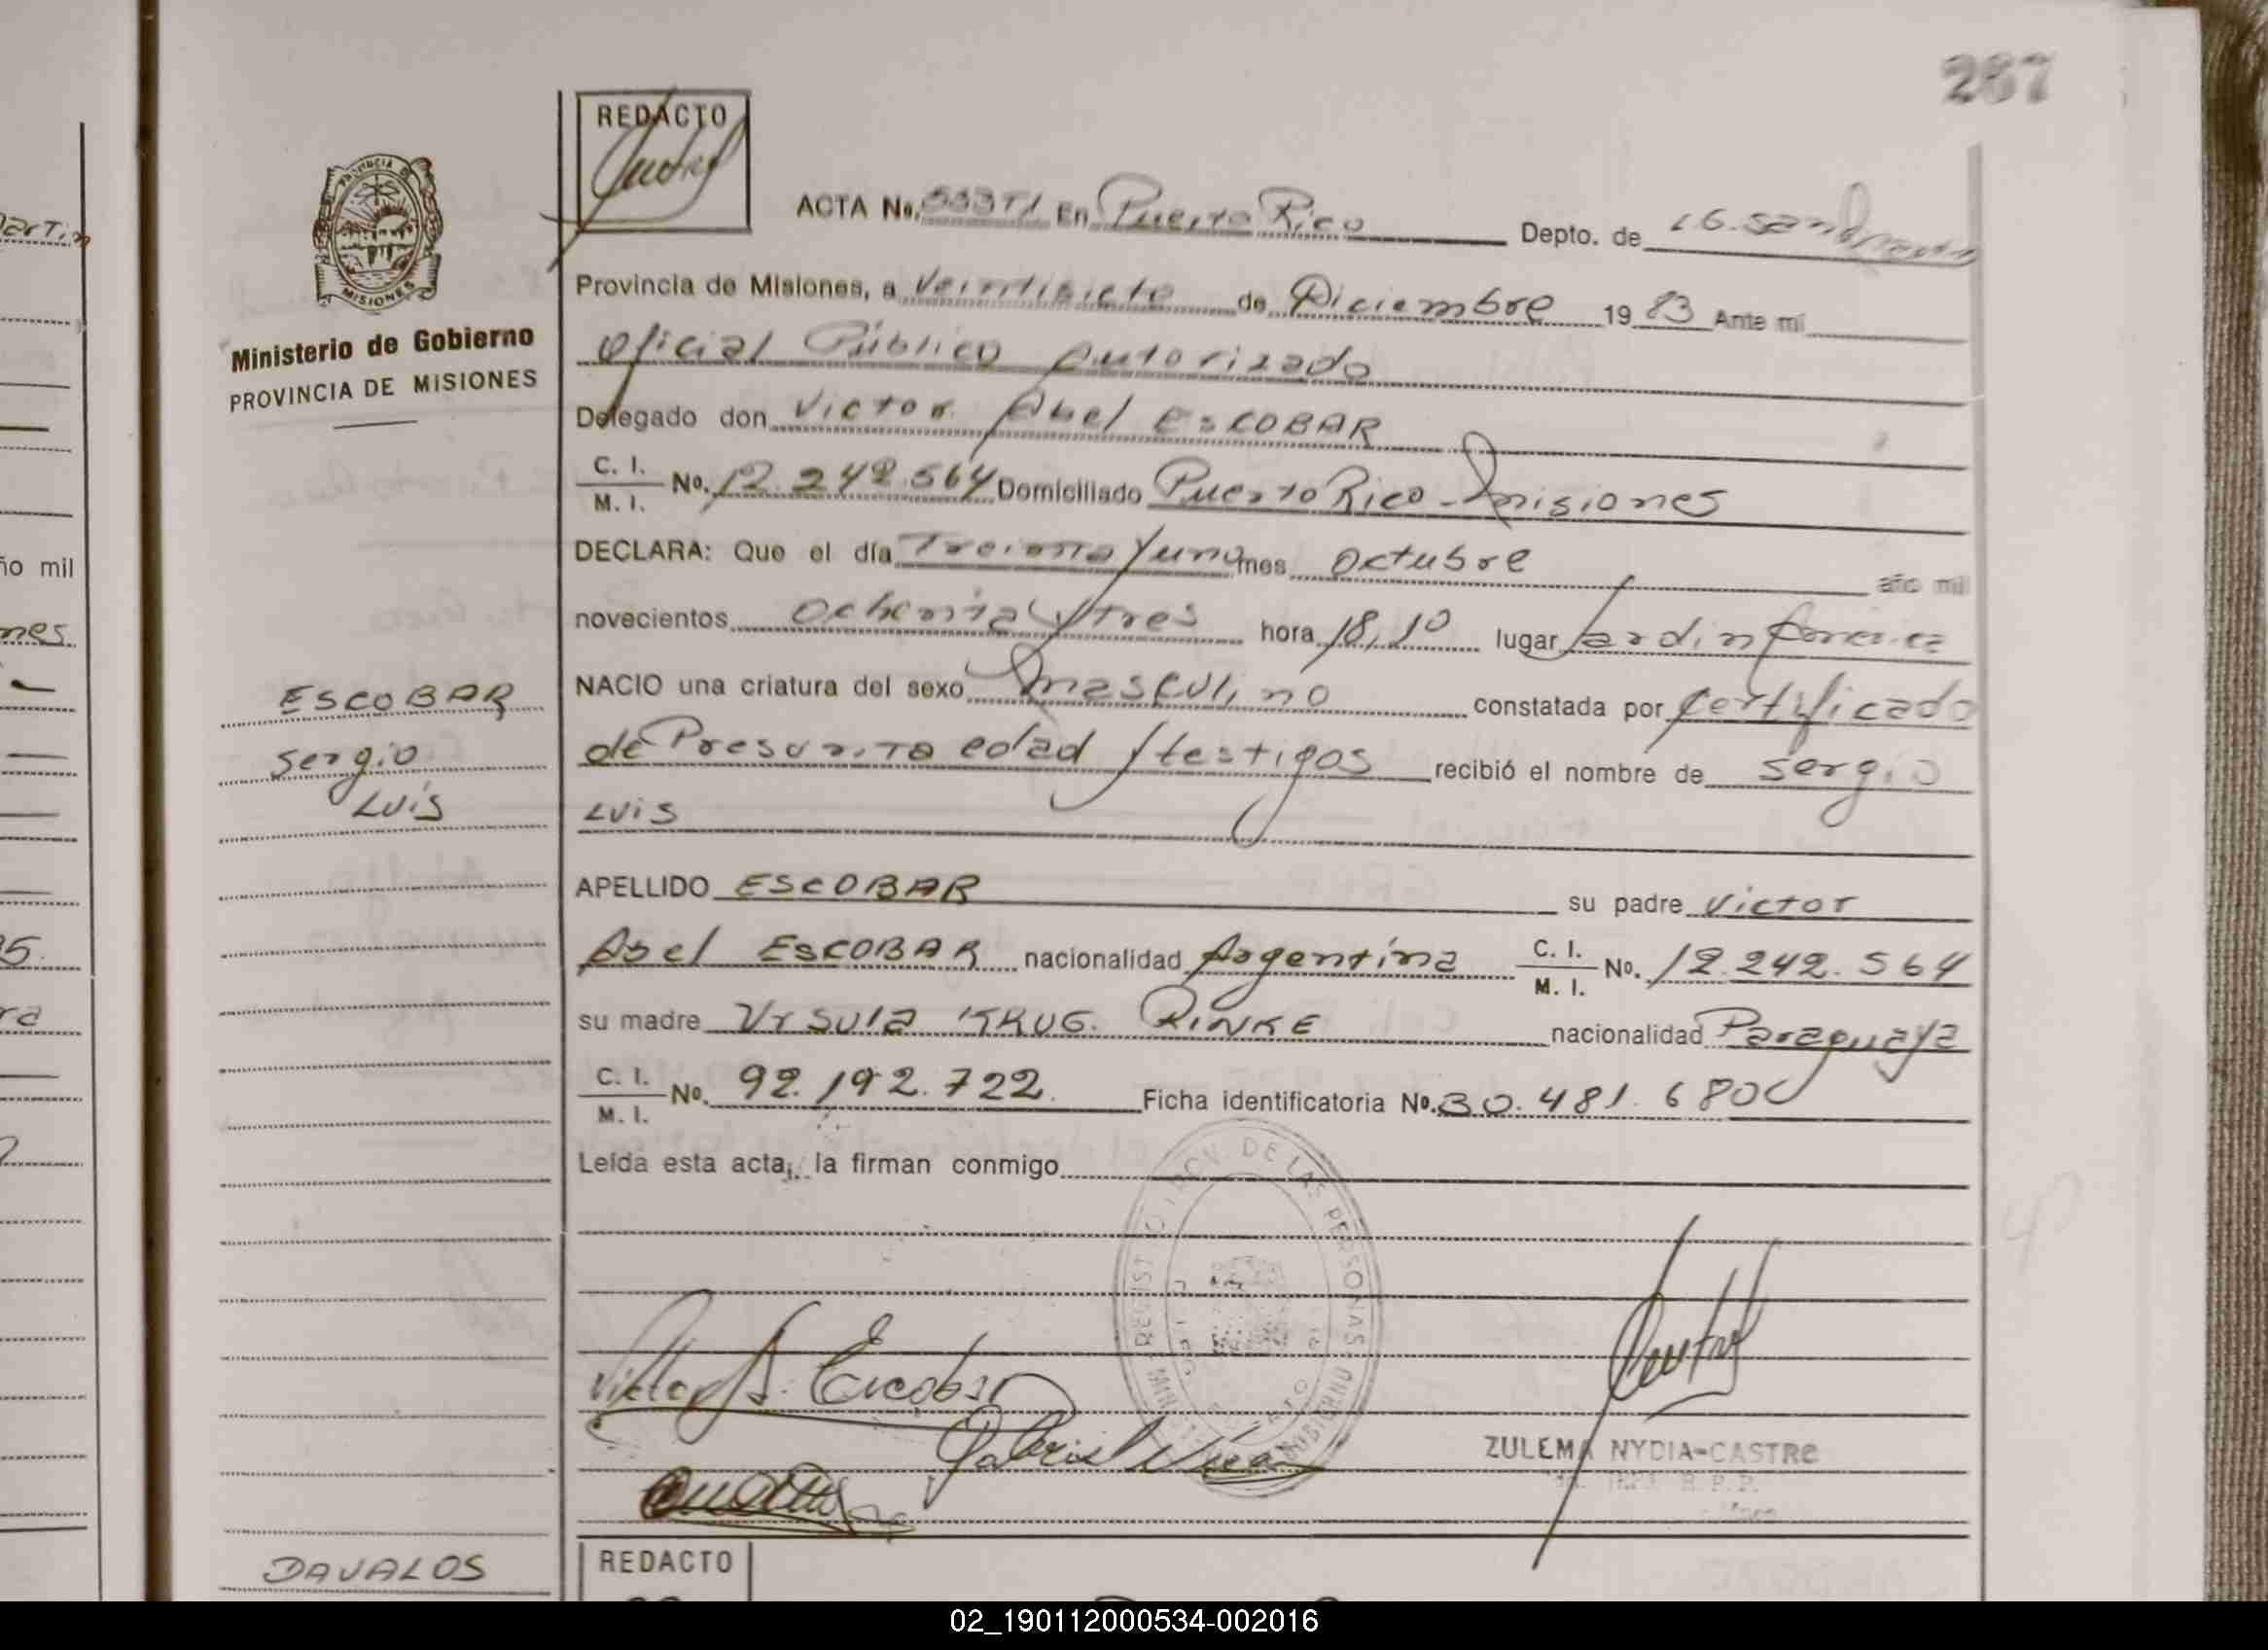 267
REDACTO
ACTA No. 533 T1 En Puerto Rico Depto. de L.G. San Martín
PROVINCIA DE
MISIONES
Provincia de Misiones, a Veintisiete de Diciembre 1983 Ante mí
Ministerio de Gobierno
PROVINCIA DE MISIONES
Oficial Público Autorizado
Delegado don Victor Abel ESCOBAR
C. I.
M. I. No. 12.242.564 Domiciliado Puerto Rico - Misiones
DECLARA: Que el día Treinta y uno mes Octubre año mil
novecientos Ochenta y tres hora 18,10 lugar Jardin America
NACIO una criatura del sexo masculino constatada por Certificado
de Presunta edad y testigos recibió el nombre de Sergio
Luis
ESCOBAR
Sergio
Luis
APELLIDO ESCOBAR su padre Victor
Abel ESCOBAR nacionalidad Argentina C. I.
M. I. No. 12.242.564
su madre Ursula KRUG RINKE nacionalidad Paraguaya
C. I.
M. I. No. 92.192.722. Ficha identificatoria No. 30.481.680
Leída esta acta, la firman conmigo
REGISTRO PROV. DE LAS PERSONAS
Victor A. Escobar
Gabriel
ZULEMA NYDIA CASTRO
DAVALOS
REDACTO
artin
ño mil
nes
5.
ra
02_190112000534-002016